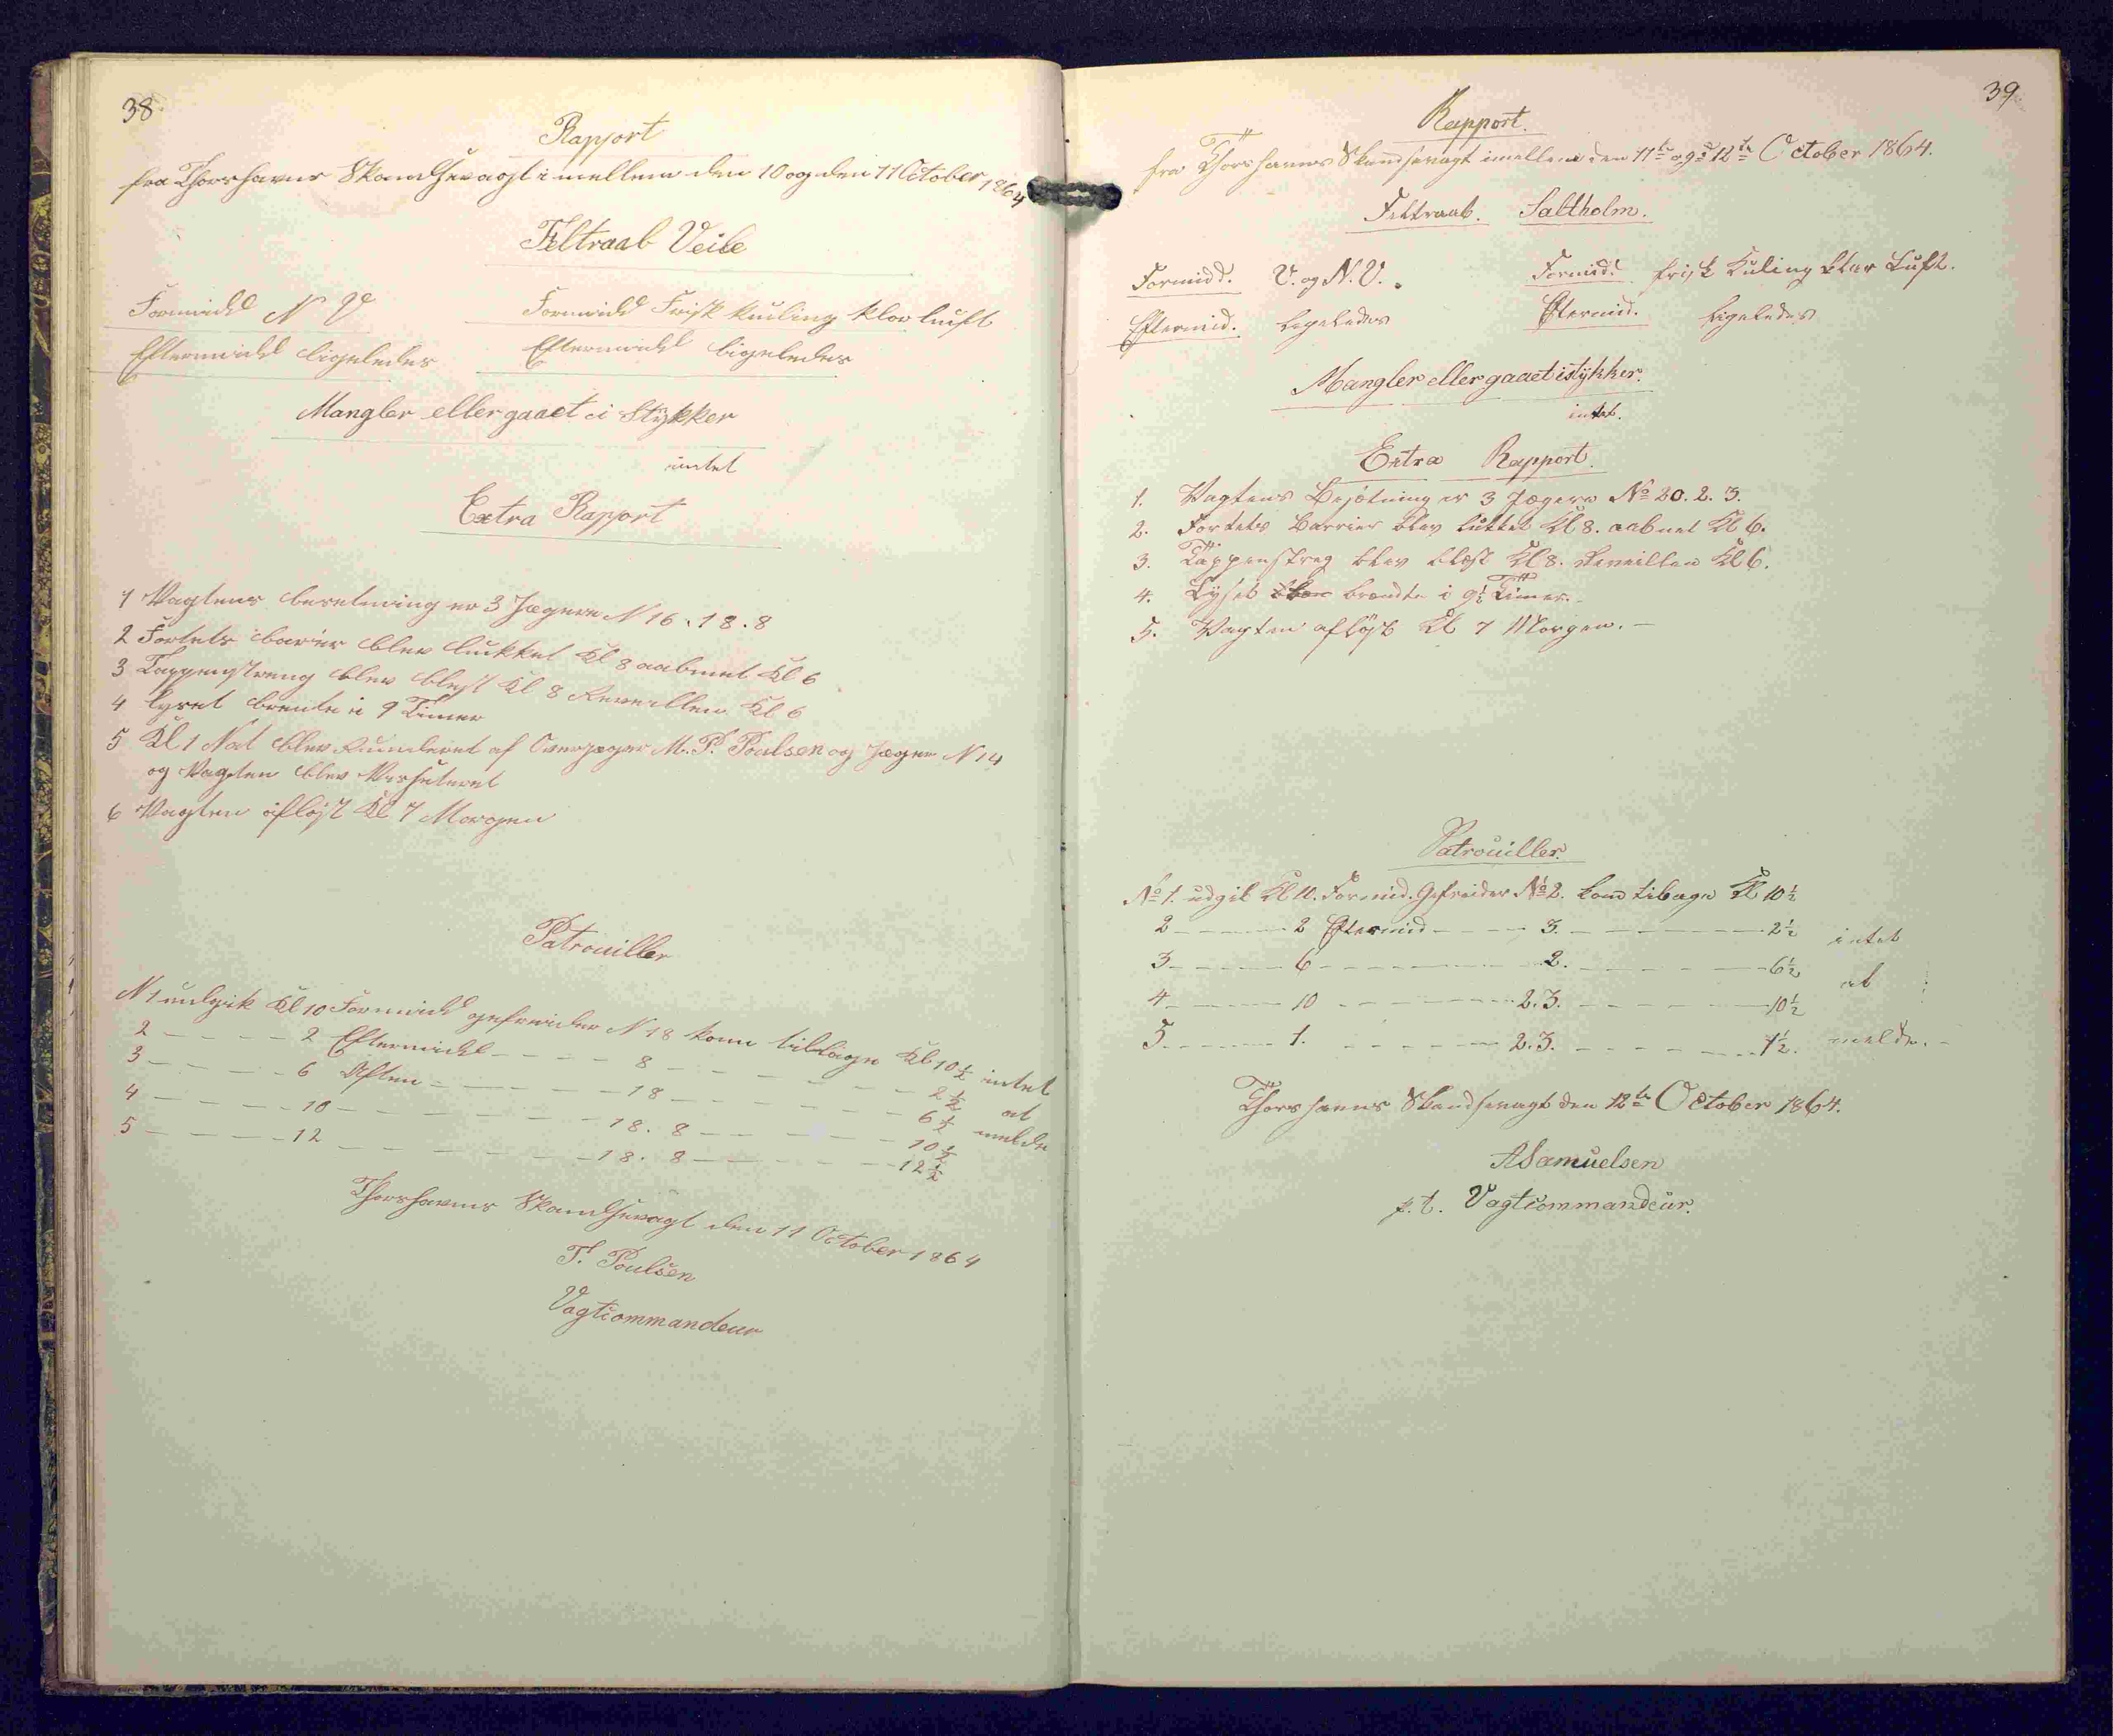 38.
Rapport
fra Thorshavns Skandsevagt imellem den 10 og den 11 October 1864
Feltraab Veile
Formidd N V
Formidd Frisk kuling klar luft
Eftermidd ligeledes
Eftermidd ligeledes
Mangler eller gaaet i Stykker
intet
Extra Rapport
1 Vagtens besetning er 3 Jægere N 16. 18. 8
2 Fortets barier blev lukket Kl 8 aabnet Kl 6
3 Tappenstreng blev blest Kl 8 Reveillen Kl 6
4 lyset brente i 9 Timer
5 Kl 1 Nat blev Runderet af Overjæger M. P. Poulsen og Jæger N 14
og Vagten blev Visiteret
6 Vagten afløst Kl 7 Morgen
Patrouiller
N 1 udgik Kl 10 Formidd gefreider N 18 kom tilbage Kl 10½ intet
2 - - - - 2 Eftermidd - - - - 8 - - - - - - 2½ at
3 - - - - 6 Aften - - - - 18 - - - - - - 6½ melde
4 - - - - 10 - - - - - - 18. 8 - - - - - 10½
5 - - - - 12 - - - - - - 18. 8 - - - - - 12½
Thorshavns Skandsevagt den 11 October 1864
P. Poulsen
Vagtcommandeur
39
Rapport.
fra Thorshavns Skandsevagt imellem den 11te og d 12te October 1864.
Feltraab. Saltholm.
Formidd. V. og N.V.
Formid. frisk Kuling klar Luft.
Eftermid. ligeledes
Eftermid. ligeledes
Mangler eller gaaet istykker.
intet.
Extra Rapport.
1. Vagtens Besætning er 3 Jægere No 20. 2. 3.
2. Fortets Barrier blev lukket Kl 8. aabnet Kl 6.
3. Tappenstreg blev blæst Kl 8. Reveillen Kl 6.
4. Lyset brændte i 9½ Timer.
5. Vagten afløst Kl 7 Morgen. -
Patrouiller.
No 1. udgik Kl 10. Formid. Gefreider No 2. kom tilbage Kl 10½
2 - - - - 2 Eftermid - - - - 3. - - - - - 2½ intet
3 - - - - 6 - - - - - - 2. - - - - - 6½ at
4 - - - - 10 - - - - - - 2.3. - - - - - 10½
5 - - - - 1. - - - - - - 2.3. - - - - - 1½. melde. -
Thorshavns Skandsevagt den 12te October 1864.
A Samuelsen
p. t. Vagtcommandeur.